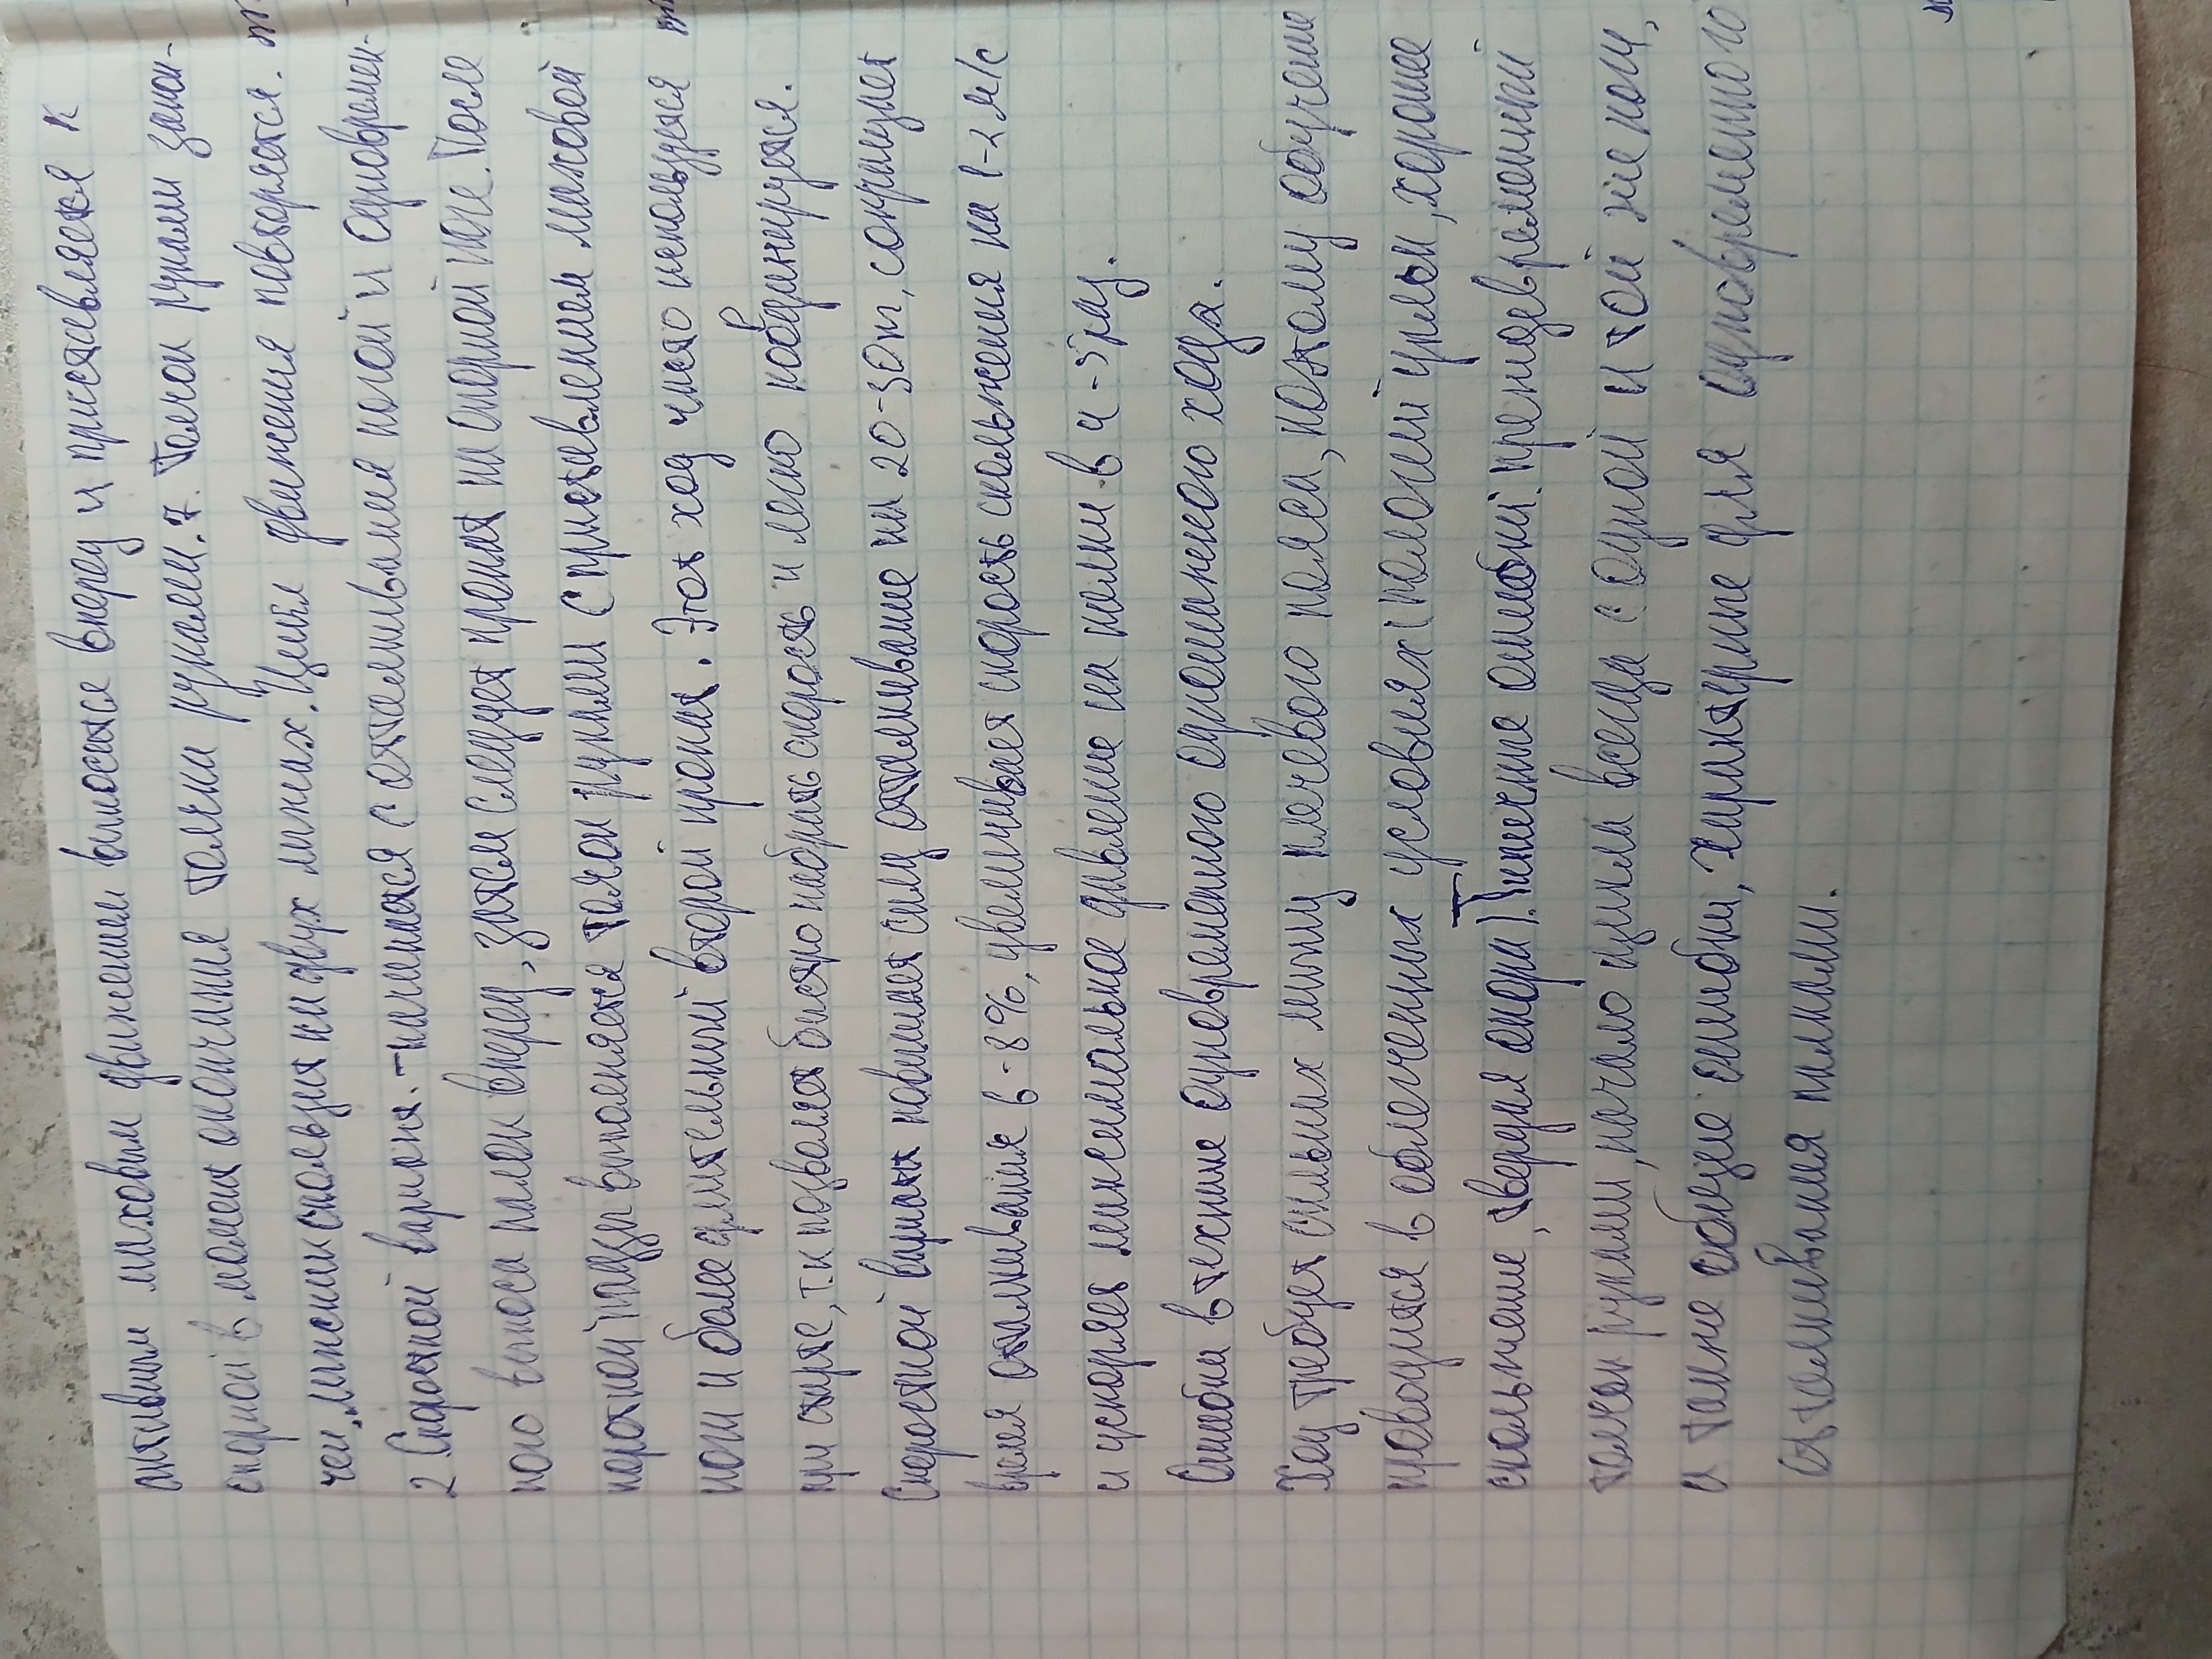 активным маховым движением выносятся вперед и приставляется к
опорной в момент окончания толчка руками. 7. Толчок руками закон-
чен, лыжник скользит на двух лыжах. Цикл движения повторяется.
2 Скоростной вариант. - начинается с отталкивания ногой и одновремен-
ного выноса палок вперед, затем следует прокат на опорной ноге. После
короткой паузы выполняется толчок руками с приставлением маховой
ноги и более длительной второй прокат. Этот ход часто используется
при старте, т.к позволяет быстро набрать скорость и легко координируется.
Скоростной вариант повышает силу отталкивание на 20-30%, сокращает
время отталкивания 6-8%, увеличивает скорость скольжения на 1-2 м/с
и ускоряет максимальное давление на палки в 4-5 раз.
Ошибка в технике одновременного одношажного хода.
Ход требует сильных мышц плечевого пояса, поэтому обучение
проводится в облегченных условиях (пологий уклон, хорошее
скольжение, твердая опора). Типичные ошибки: преждевременный
толчок руками, начало цикла всегда с одной и той же ноги,
а также общие ошибки, характерные для одновременного
отталкивания палками.